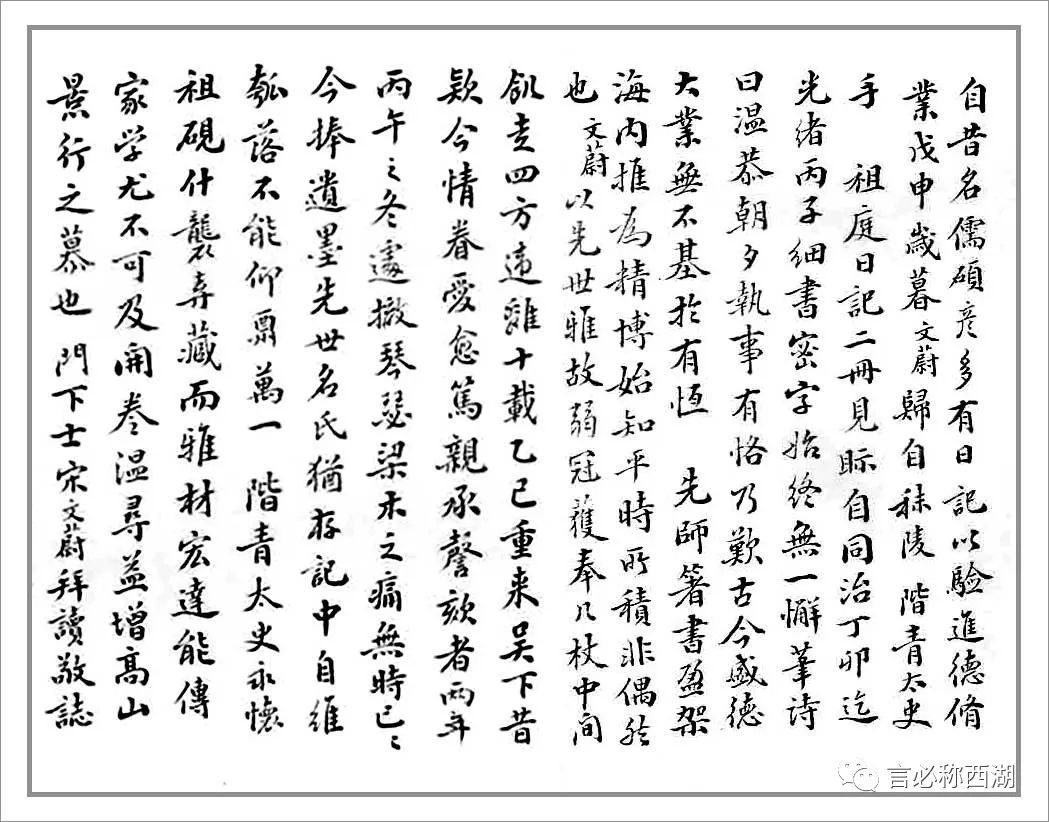 自昔名儒碩彦多有日記以驗進德脩
業戊申歲暮文蔚歸自秣陵 階青太史
手 祖庭日記二冊見眎自同治丁卯迄
光緒丙子細書密字始終無一懈筆詩
曰溫恭朝夕執事有恪乃歎古今盛德
大業無不基於有恆 先師箸書盈架
海內推為精博始知平時所積非偶然
也文蔚以先世雅故弱冠獲奉几杖中間
飢走四方違離十載乙巳重来吴下昔
款今情眷愛愈篤親承謦欬者兩年
丙午之冬遽撤琴瑟梁木之痛無時已〻
今捧遺墨先世名氏猶存記中自維
瓠落不能仰酬萬一 階青太史永懷
祖硯什襲弆藏而雅材宏達能傳
家学尤不可及開卷溫尋益增高山
景行之慕也門下士宋文蔚拜讀敬誌
言必称西湖